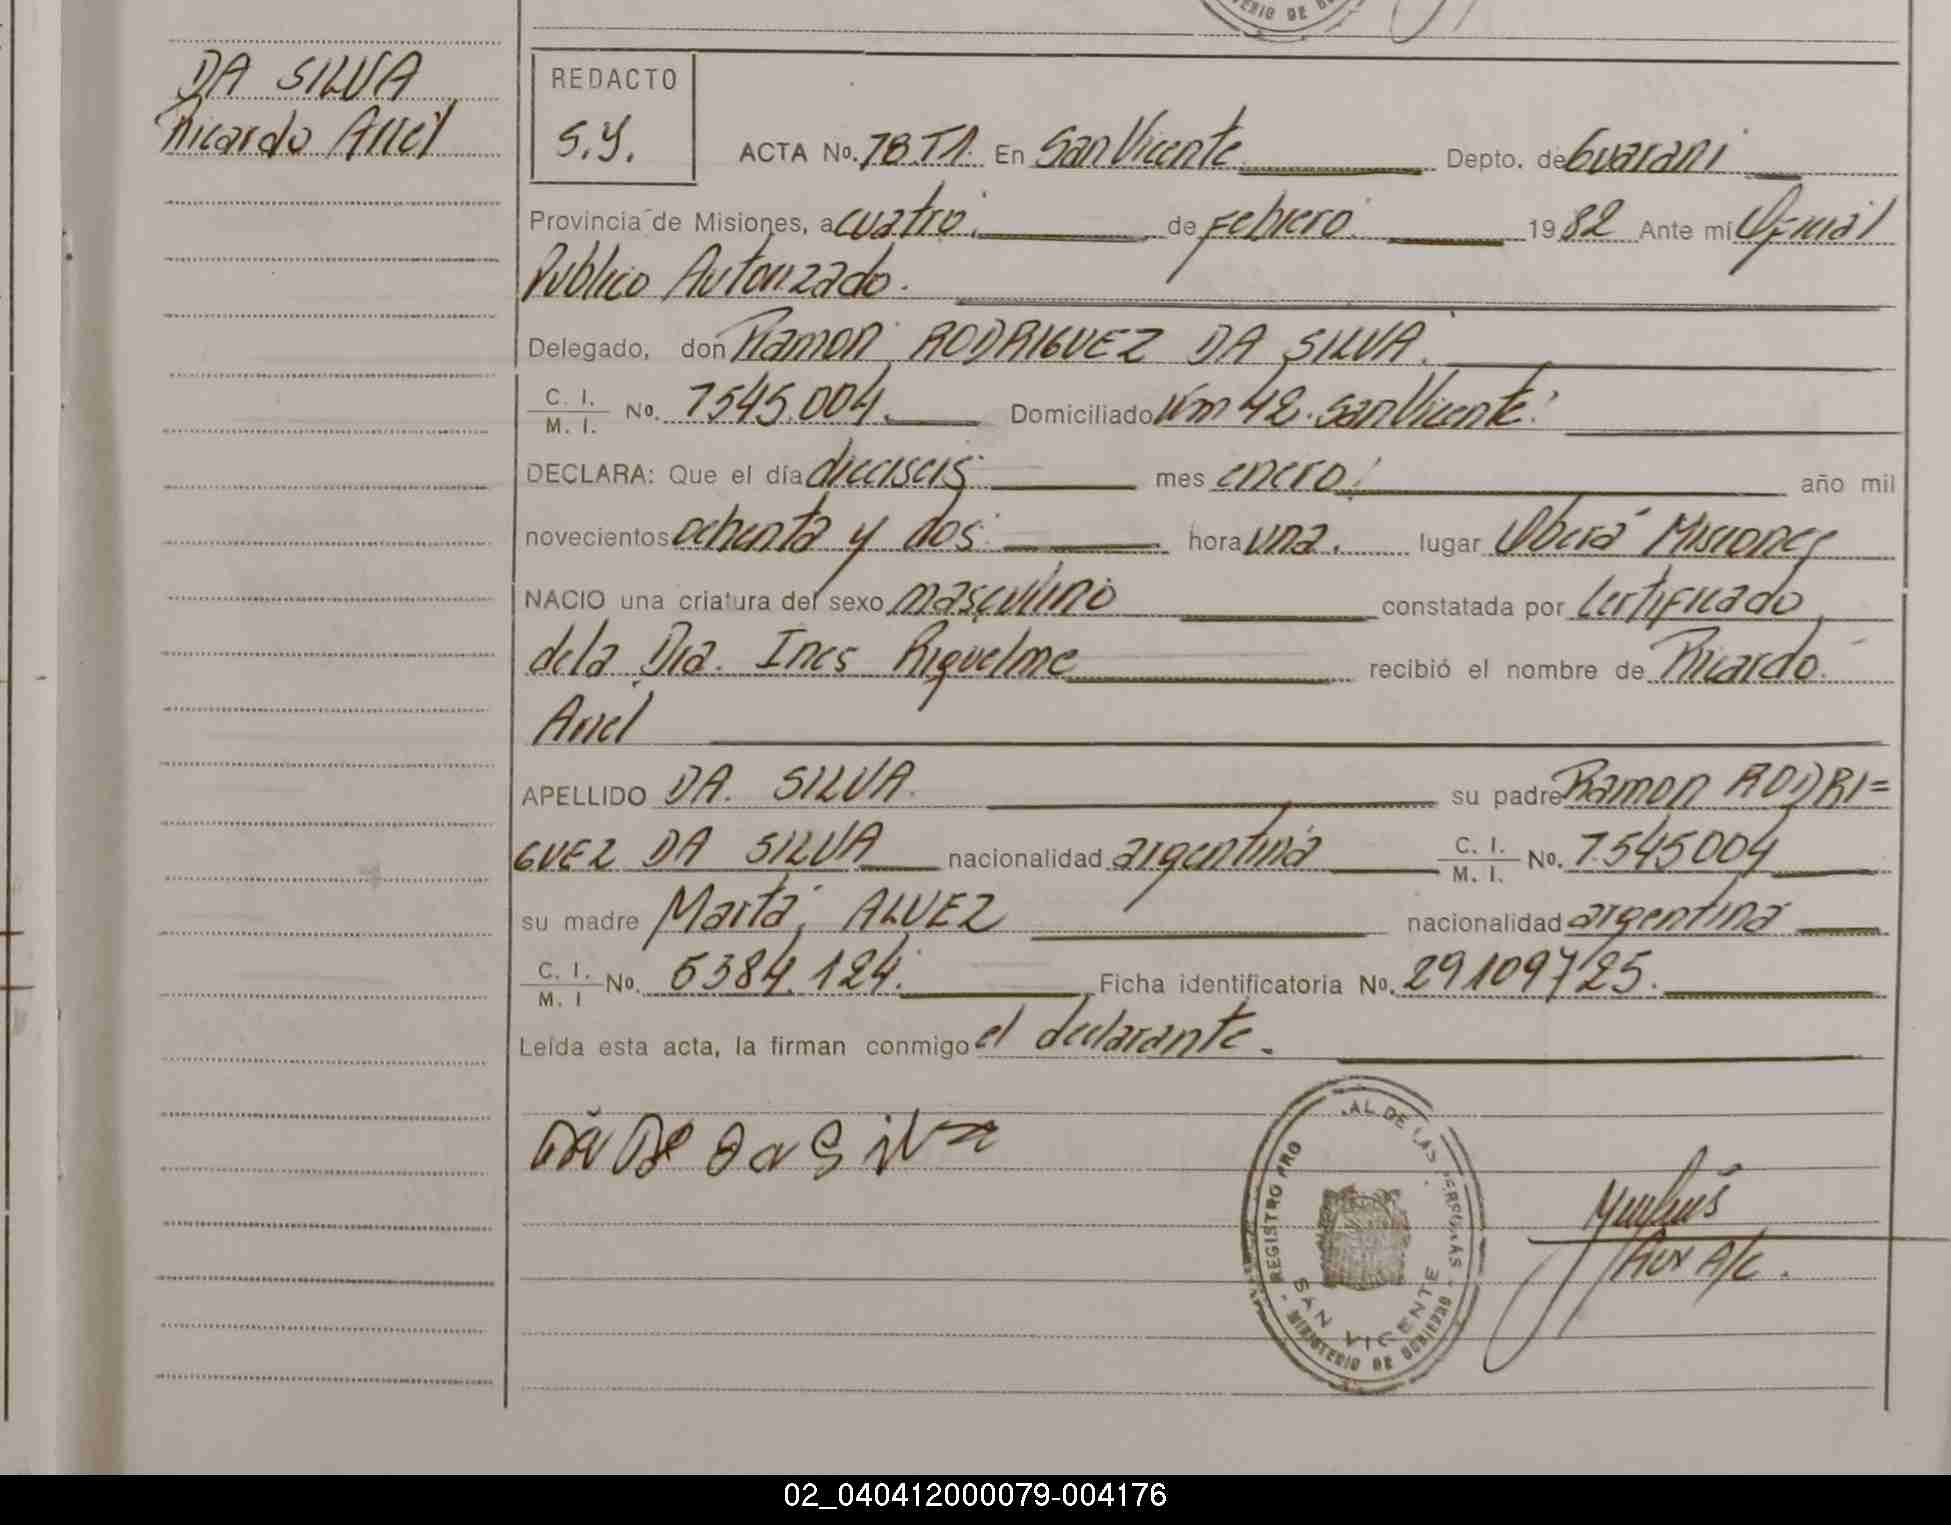 DA SILVA
Ricardo Ariel
REDACTO
S.Y.
ACTA No. 78 T1. En San Vicente Depto. de Guarani
Provincia de Misiones, a cuatro. de Febrero. 1982 Ante mí Oficial
Publico Autorizado.
Delegado, don Ramon RODRIGUEZ DA SILVA.
C. I. / M. I. No. 7545.004. Domiciliado Km 42. San Vicente.
DECLARA: Que el día dieciseis mes enero. año mil
novecientos ochenta y dos hora una. lugar Oberá Misiones
NACIO una criatura del sexo masculino constatada por Certificado
de la Dra. Ines Riquelme recibió el nombre de Ricardo
Ariel
APELLIDO DA SILVA. su padre Ramon RODRI=
GUEZ DA SILVA nacionalidad argentina C. I. / M. I. No. 7.545004
su madre Marta ALVEZ nacionalidad argentina
C. I. / M. I No. 6384.124. Ficha identificatoria No. 29109725.
Leída esta acta, la firman conmigo el declarante.
Da Silva
REGISTRO PRO AL DE LAS PERSONAS
SAN VICENTE
MINISTERIO DE GOBIERNO
Aux A/C.
02_040412000079-004176